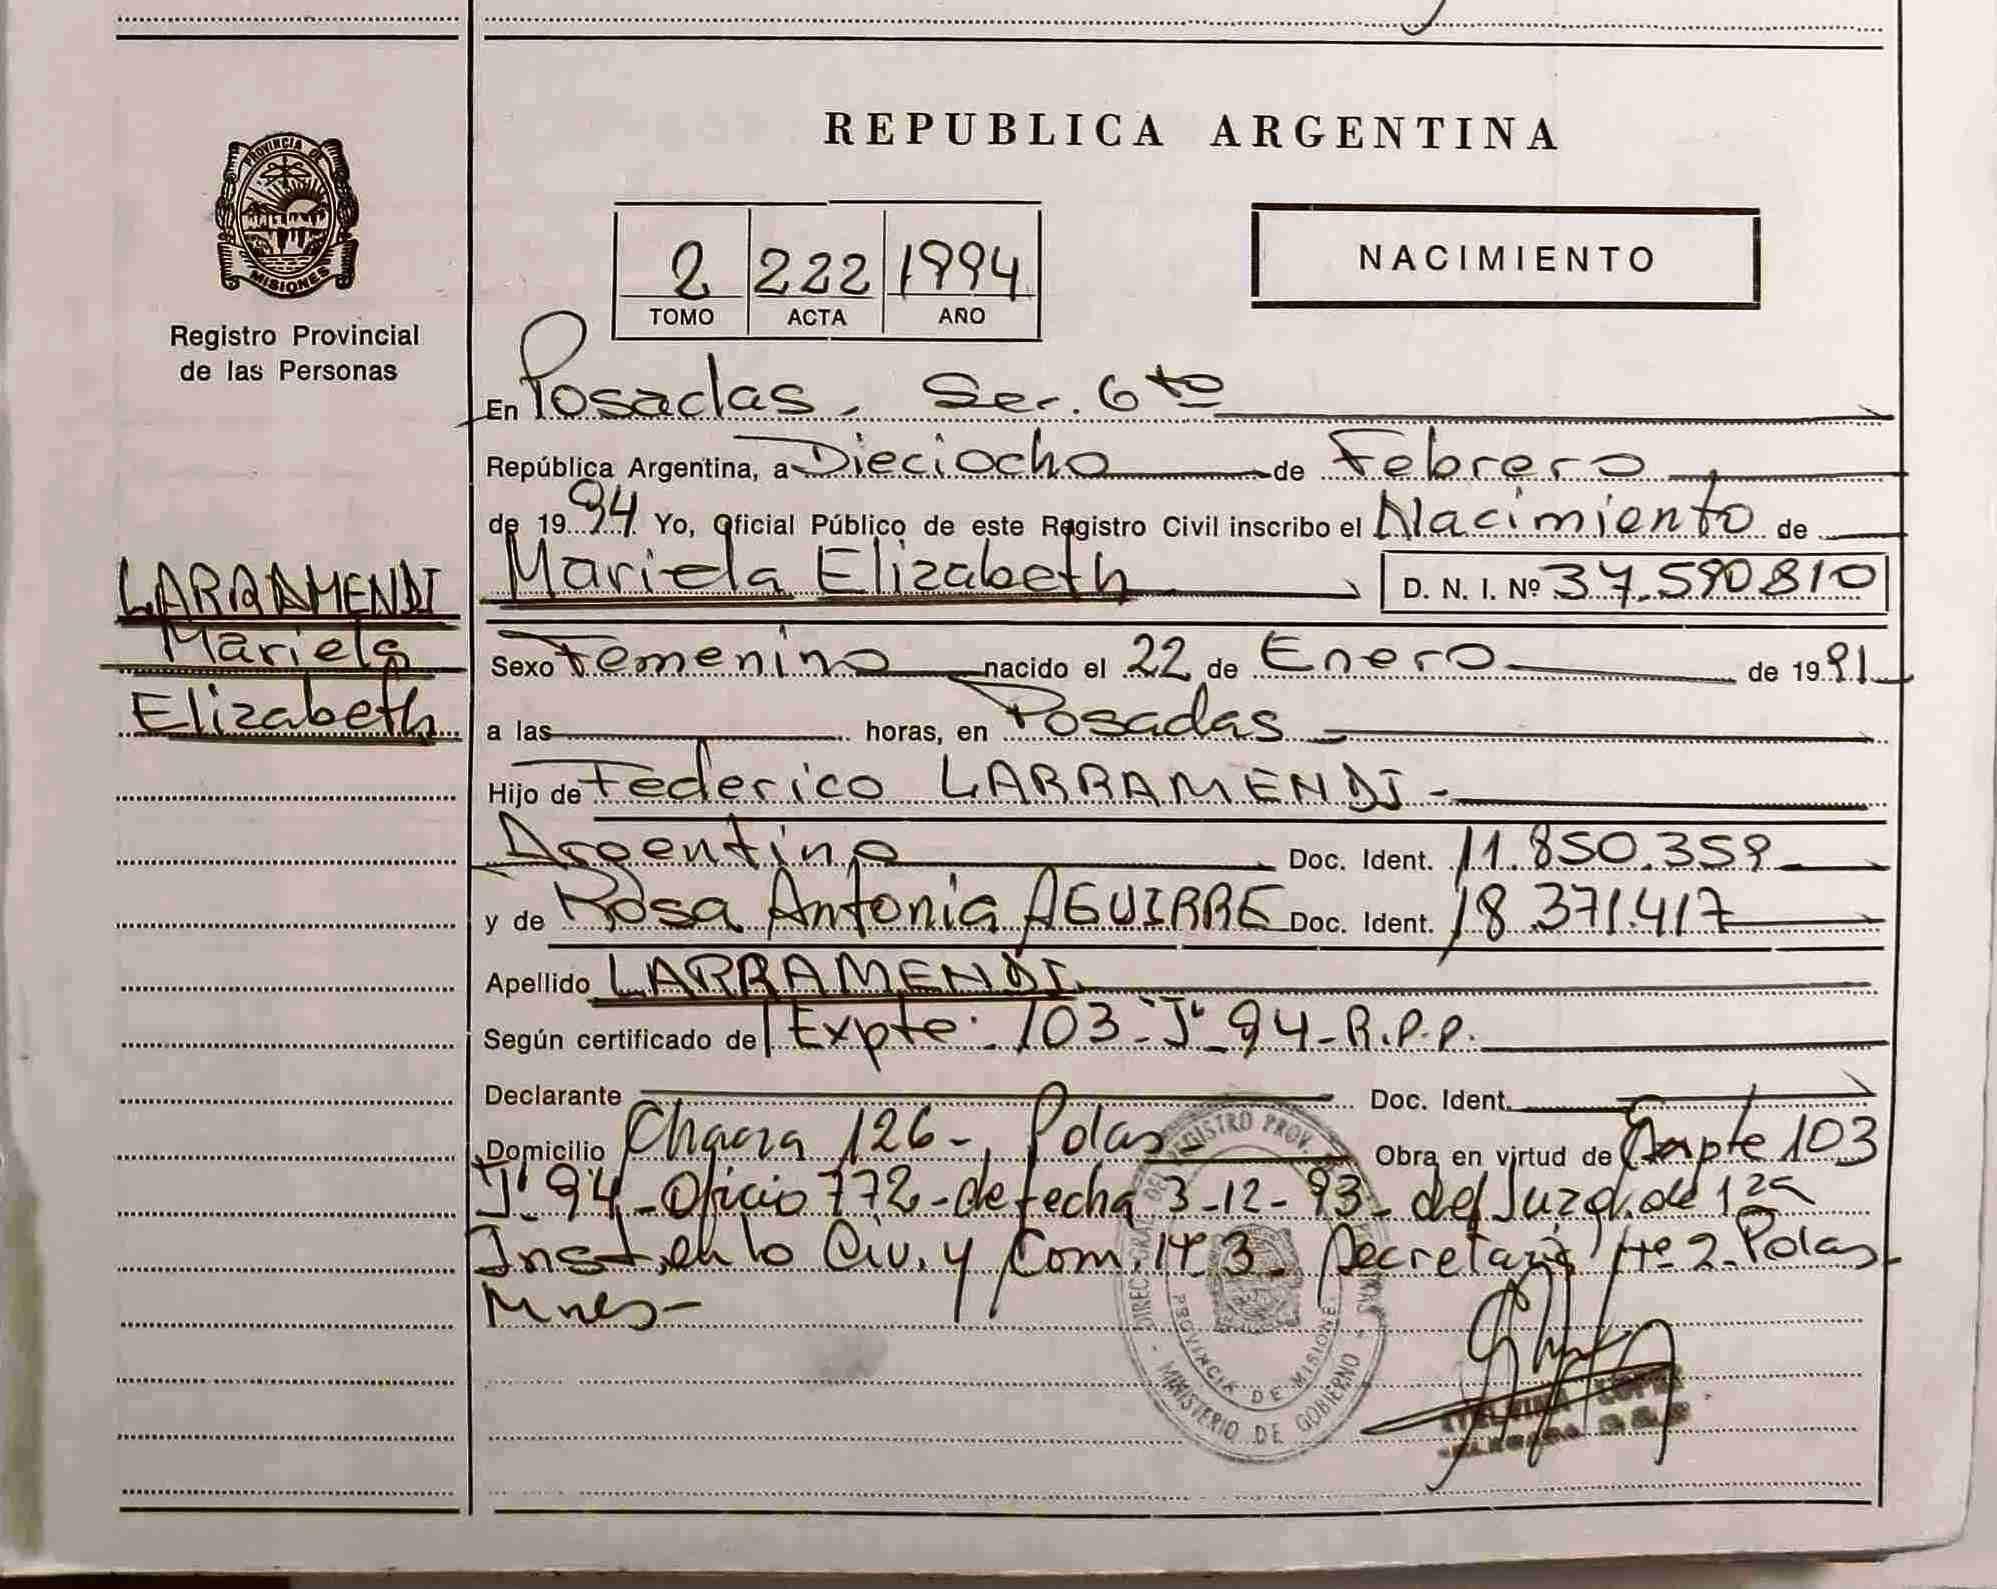 REPUBLICA ARGENTINA
PROVINCIA DE
MISIONES
Registro Provincial
de las Personas
2 222 1994
TOMO ACTA AÑO
NACIMIENTO
En Posadas, Sec. 6to
República Argentina, a Dieciocho de Febrero
de 1994 Yo, Oficial Público de este Registro Civil inscribo el Nacimiento de
LARRAMENDI
Mariela
Elizabeth
Mariela Elizabeth D. N. I. Nº 37.590810
Sexo Femenino nacido el 22 de Enero de 1991
a las horas, en Posadas
Hijo de Federico LARRAMENDI -
Argentino Doc. Ident. 11.850.359
y de Rosa Antonia AGUIRRE Doc. Ident. 18.371.417
Apellido LARRAMENDI
Según certificado de Expte: 103-"J"-94-R.P.P.
Declarante Doc. Ident.
Domicilio Chacra 126-, Pdas- Obra en virtud de Expte 103
"J"-94-Oficio 772-de fecha 3-12-93-del Juzg. de 1ra
Inst. en lo Civ. y Com. Nº 3- Secretaria Nº 2-Pdas-
Mnes-
DIREC. GRAL. DE REGISTRO PROV.
PROVINCIA DE MISIONES
MINISTERIO DE GOBIERNO